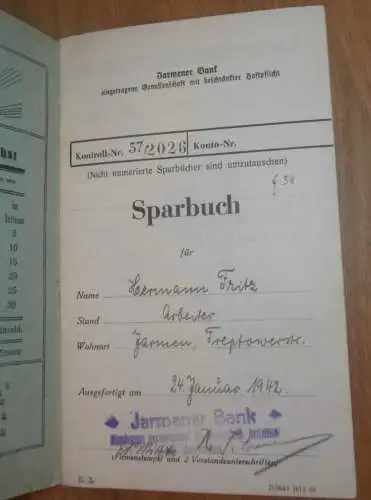 Jarmener Bank
eingetragene Genossenschaft mit beschränkter Haftpflicht
Kontroll-Nr. 57/2026 Konto-Nr.
(Nicht numerierte Sparbücher sind umzutauschen)
Sparbuch
für
Name Hermann Fritz
Stand Arbeiter
Wohnort Jarmen, Treptowerstr.
Ausgefertigt am 24. Januar 1942.
Jarmener Bank
(Firmenstempel und 2 Vorstandsunterschriften)
in
2
10
15
20
25
30